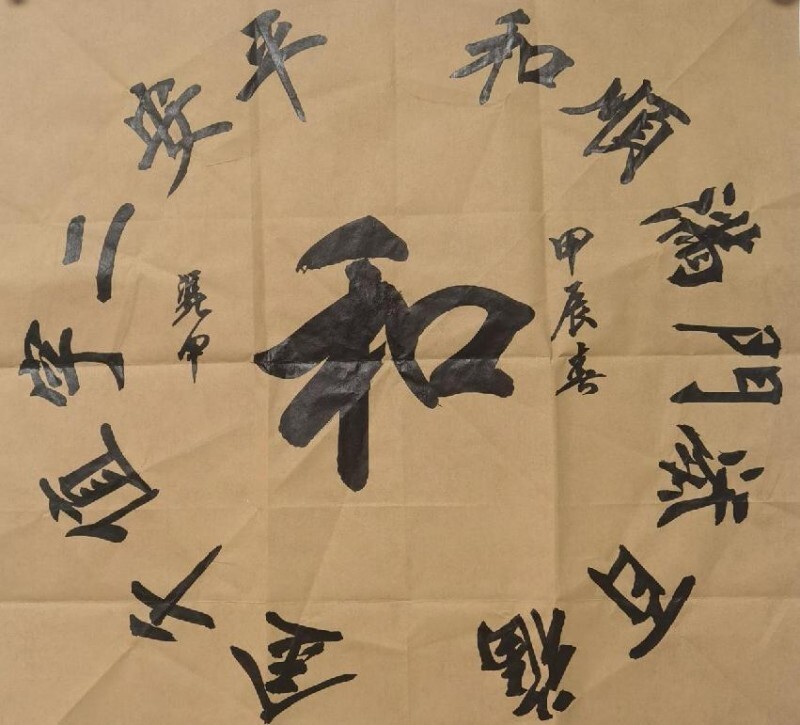 和順滿門添百福
平安二字值千金
和
甲辰春